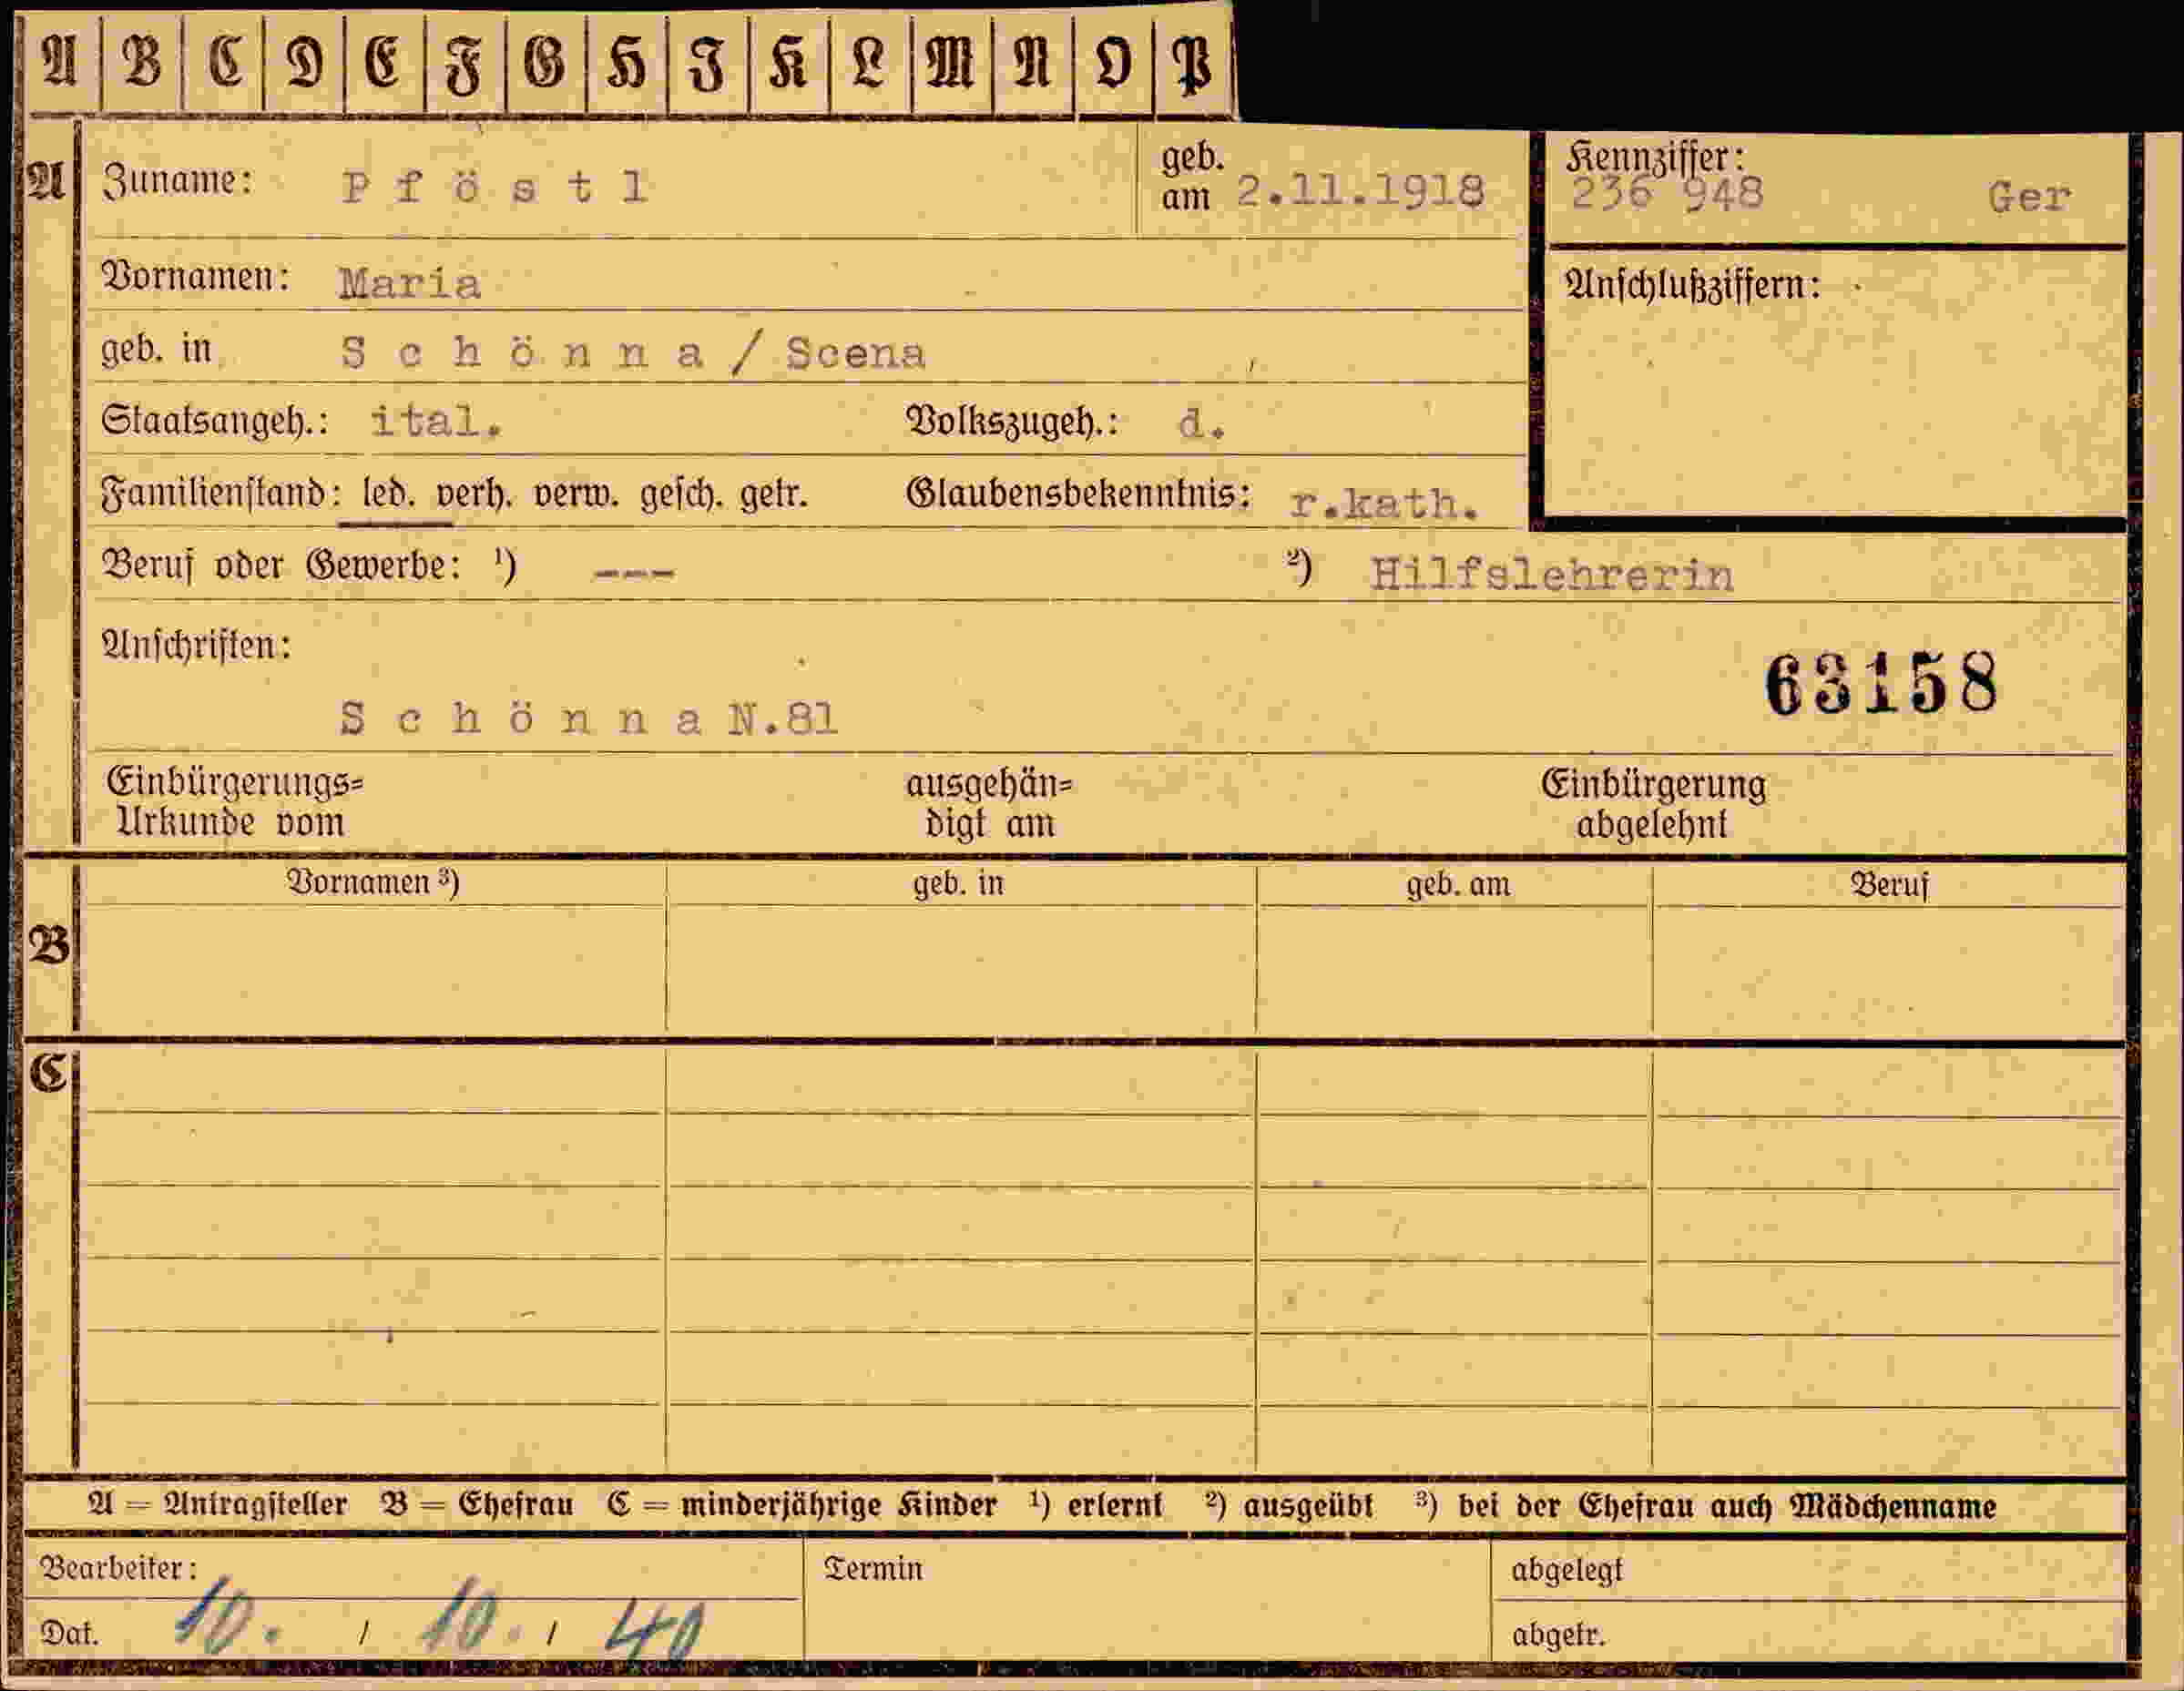 A B C D E F G H I K L M N O P
A Zuname: Pföstl geb. am 2.11.1918 Kennziffer: 236 948 Ger
Vornamen: Maria Anschlußziffern:
geb. in Schönna/Scena
Staatsangeh.: ital. Volkszugeh.: d.
Familienstand: led. verh. verw. gesch. getr. Glaubensbekenntnis: r.kath.
Beruf oder Gewerbe: ¹) --- ²) Hilfslehrerin
Anschriften:
63158
Schönna N.81
Einbürgerungs= ausgehän= Einbürgerung
Urkunde vom digt am abgelehnt
Vornamen ³) geb. in geb. am Beruf
B
C
A = Antragsteller B = Ehefrau C = minderjährige Kinder ¹) erlernt ²) ausgeübt ³) bei der Ehefrau auch Mädchenname
Bearbeiter: Termin abgelegt
Dat. 10. / 10. / 40 abgetr.